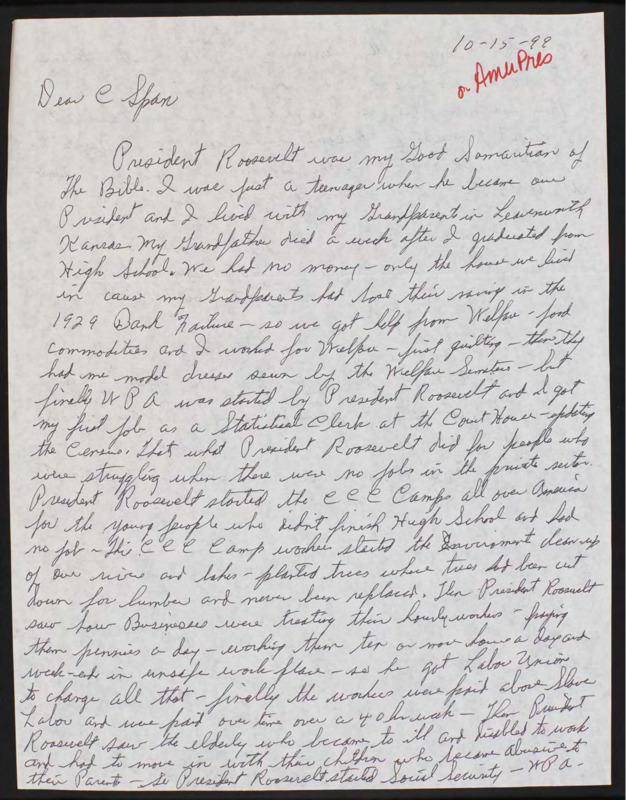 10-15-99
or AmuPres
Dear C Span
President Roosevelt was my Good Samaritian of
The Bible. I was just a teenager when he became our
President and I lived with my Grandparent in Leavenworth
Kansas. My Grandfather died a week after I graduated from
High School. We had no money - only the house we lived
in cause my Grandparents had lost their saving in the
1929 Bank Failure - so we got help from Welfare - food
commodities and I worked for Welfare - first quilting - then they
had me model dresses sewn by the Welfare - but
finally WPA was started by President Roosevelt and I got
my first job as a Statistical Clerk at the Court House - updating
the Census. That what President Roosevelt did for people who
were struggling when there were no jobs in the private sector.
President Roosevelt started the CCC Camps all over America
for the young people who didn't finish High School and had
no job - This CCC Camp workers started the Environment clean up
of our rivers and lakes - planted trees where trees had been cut
down for lumber and never been replaced. Then President Roosevelt
saw how Businesses were treating their hourly workers - paying
them pennies a day - working them ten or more hours a day and
week-end in unsafe work place - so he got Labor Union
to change all that - finally the workers were paid above Slave
Labor and were paid over time over a 40 hr week - Then President
Roosevelt saw the elderly who became to ill and disabled to work
and had to move in with their children who became abusive to
their Parents - so President Roosevelt started Social Security - WPA -